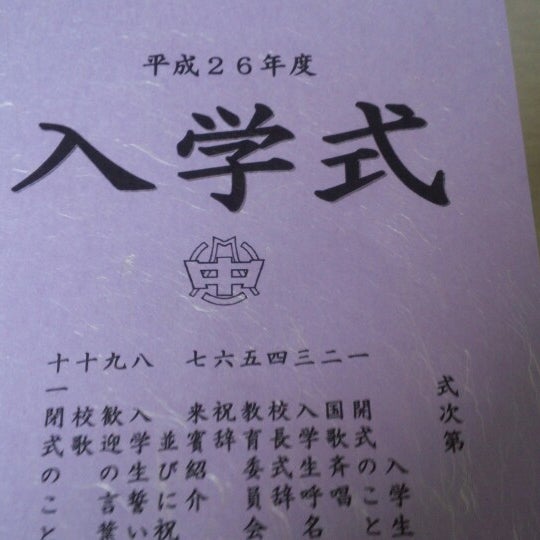 平成26年度
入学式
中
式次第
入学生
一 開式のこと
二 国歌斉唱
三 入学生呼名
四 校長式辞
五 教育委員会
六 祝辞
七 来賓紹介
並びに祝
八 入学生誓い
九 歓迎の言葉
十 校歌
十一 閉式のこと